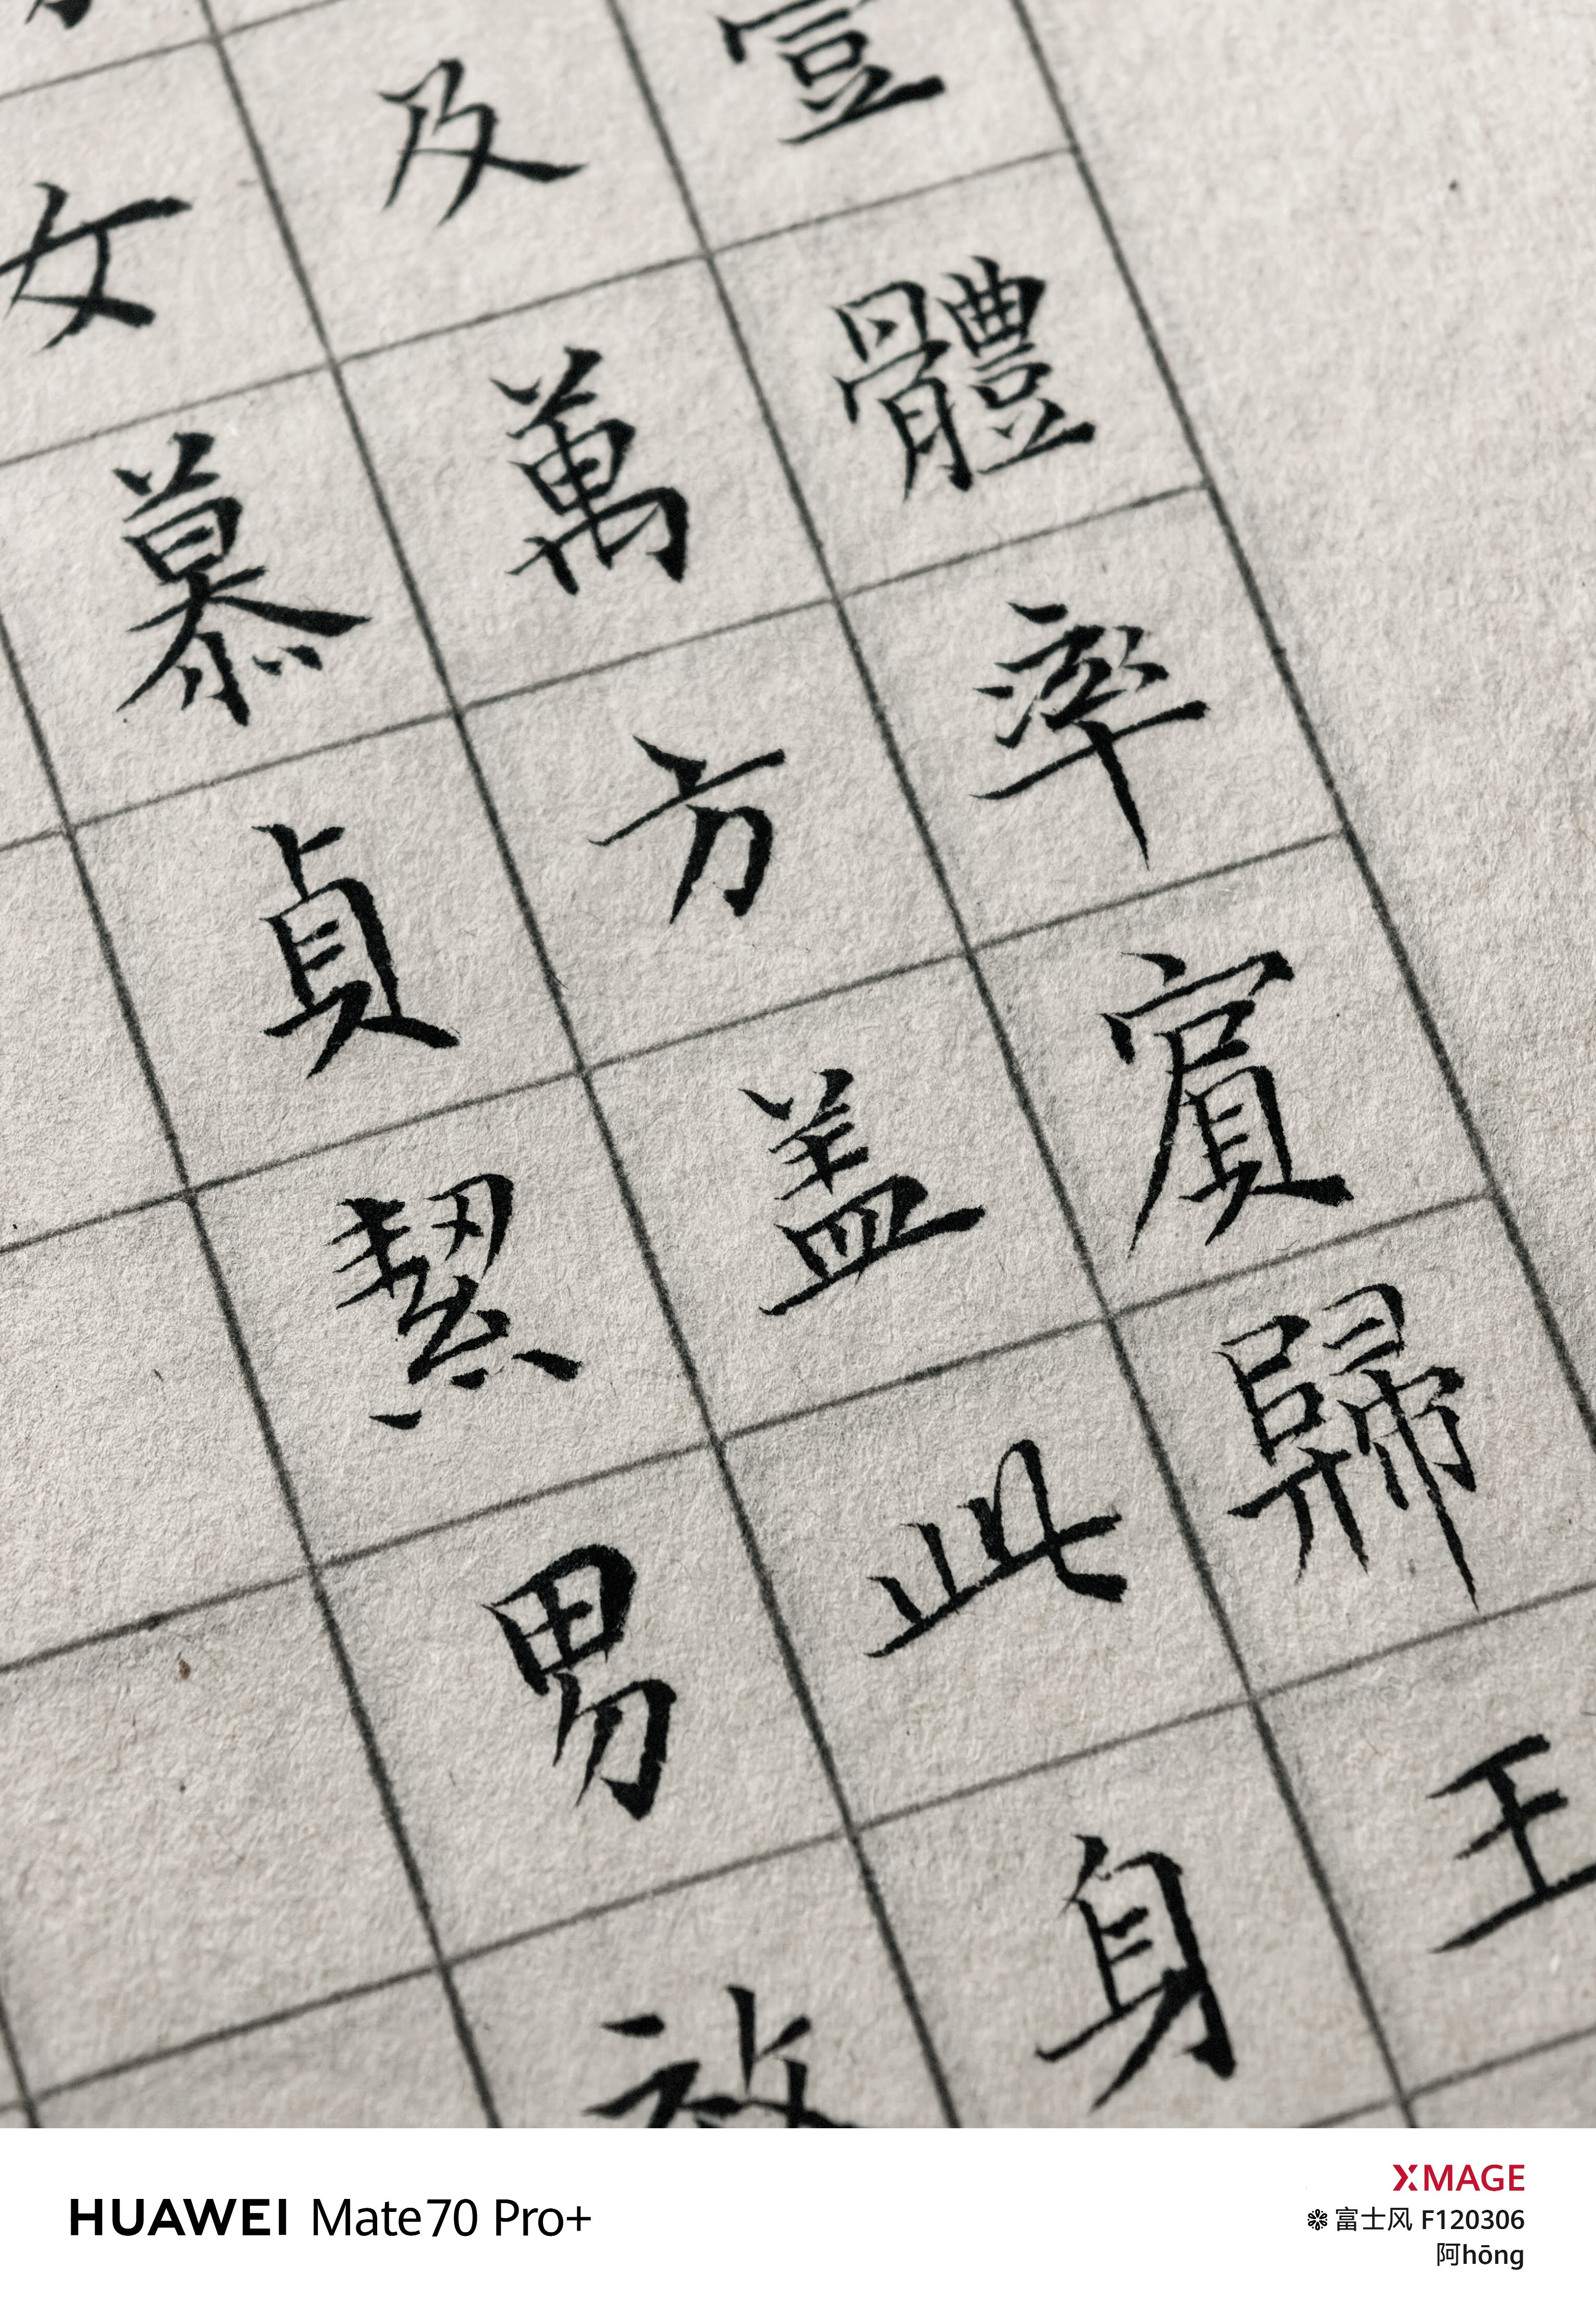 壹體率賓歸王
及萬方盖此身
女慕貞絜男
HUAWEI Mate70 Pro+
XMAGE
富士风 F120306
阿hōng